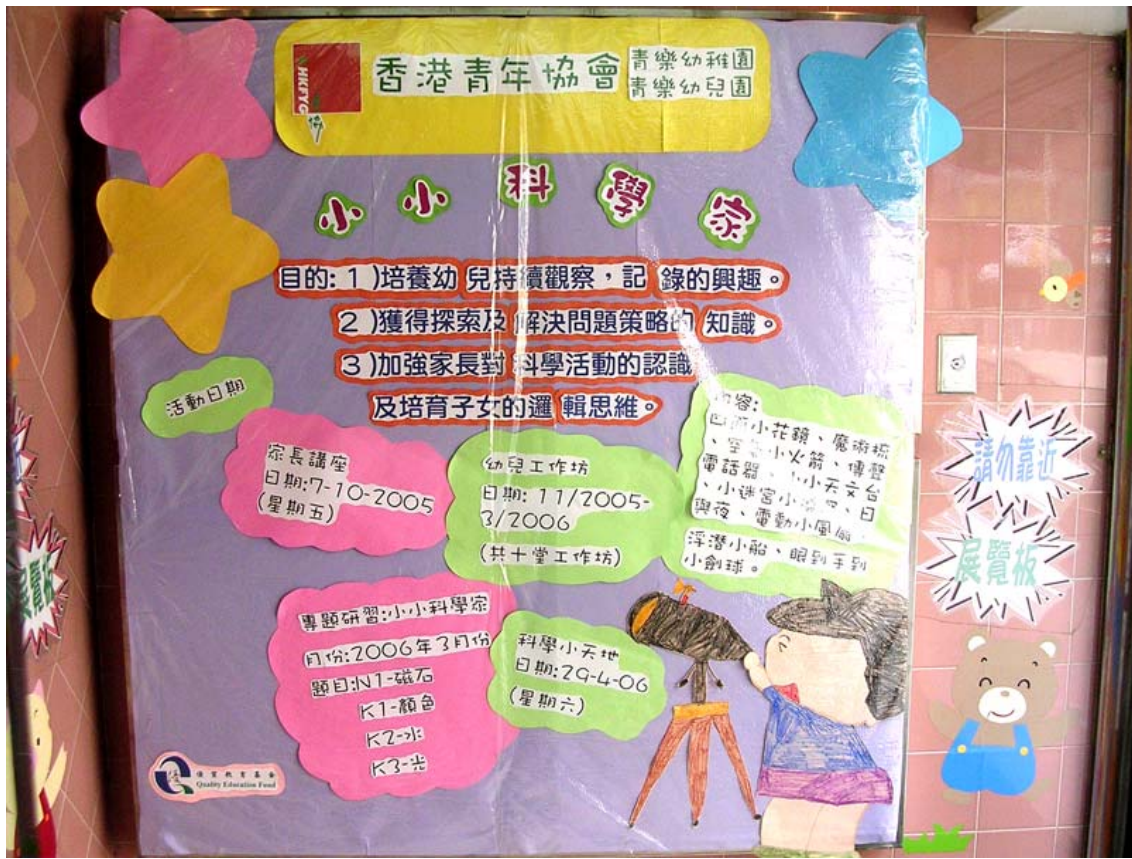 HKFYG
香港青年協會
青樂幼稚園
青樂幼兒園
小小科學家
目的:1)培養幼兒持續觀察，記錄的興趣。
2)獲得探索及解決問題策略的知識。
3)加強家長對科學活動的認識
及培育子女的邏輯思維。
活動日期
家長講座
日期:7-10-2005
(星期五)
幼兒工作坊
日期: 11/2005-
3/2006
(共十堂工作坊)
內容:
小花鏡、魔術
、空氣小火箭、傳聲
電話器、小天文台
、小迷宮小、日
與夜、電動小風扇、
浮潛小船、眼到手到
小劍球。
專題研習:小小科學家
月份:2006年3月份
題目:N1-磁石
K1-顏色
K2-水
K3-光
科學小天地
日期:29-4-06
(星期六)
優質教育基金
Quality Education Fund
請勿靠近
展覽板
展覽板